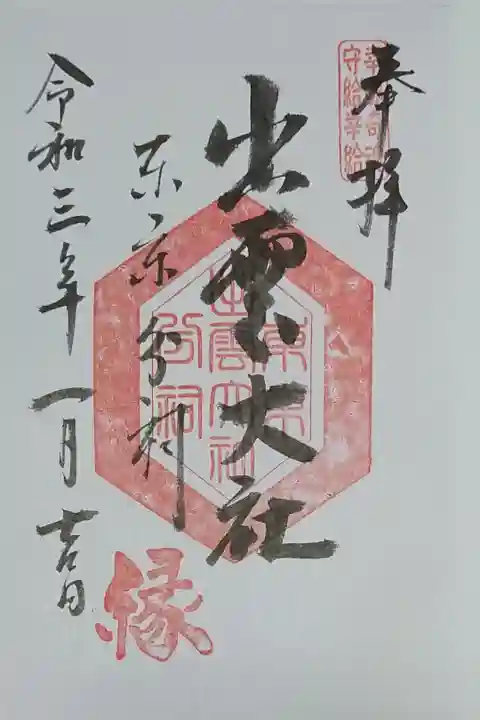 奉拝
幸給
守給幸給
出雲大社
東京分祠
東京
出雲大社
分祠
令和三年一月吉日
縁